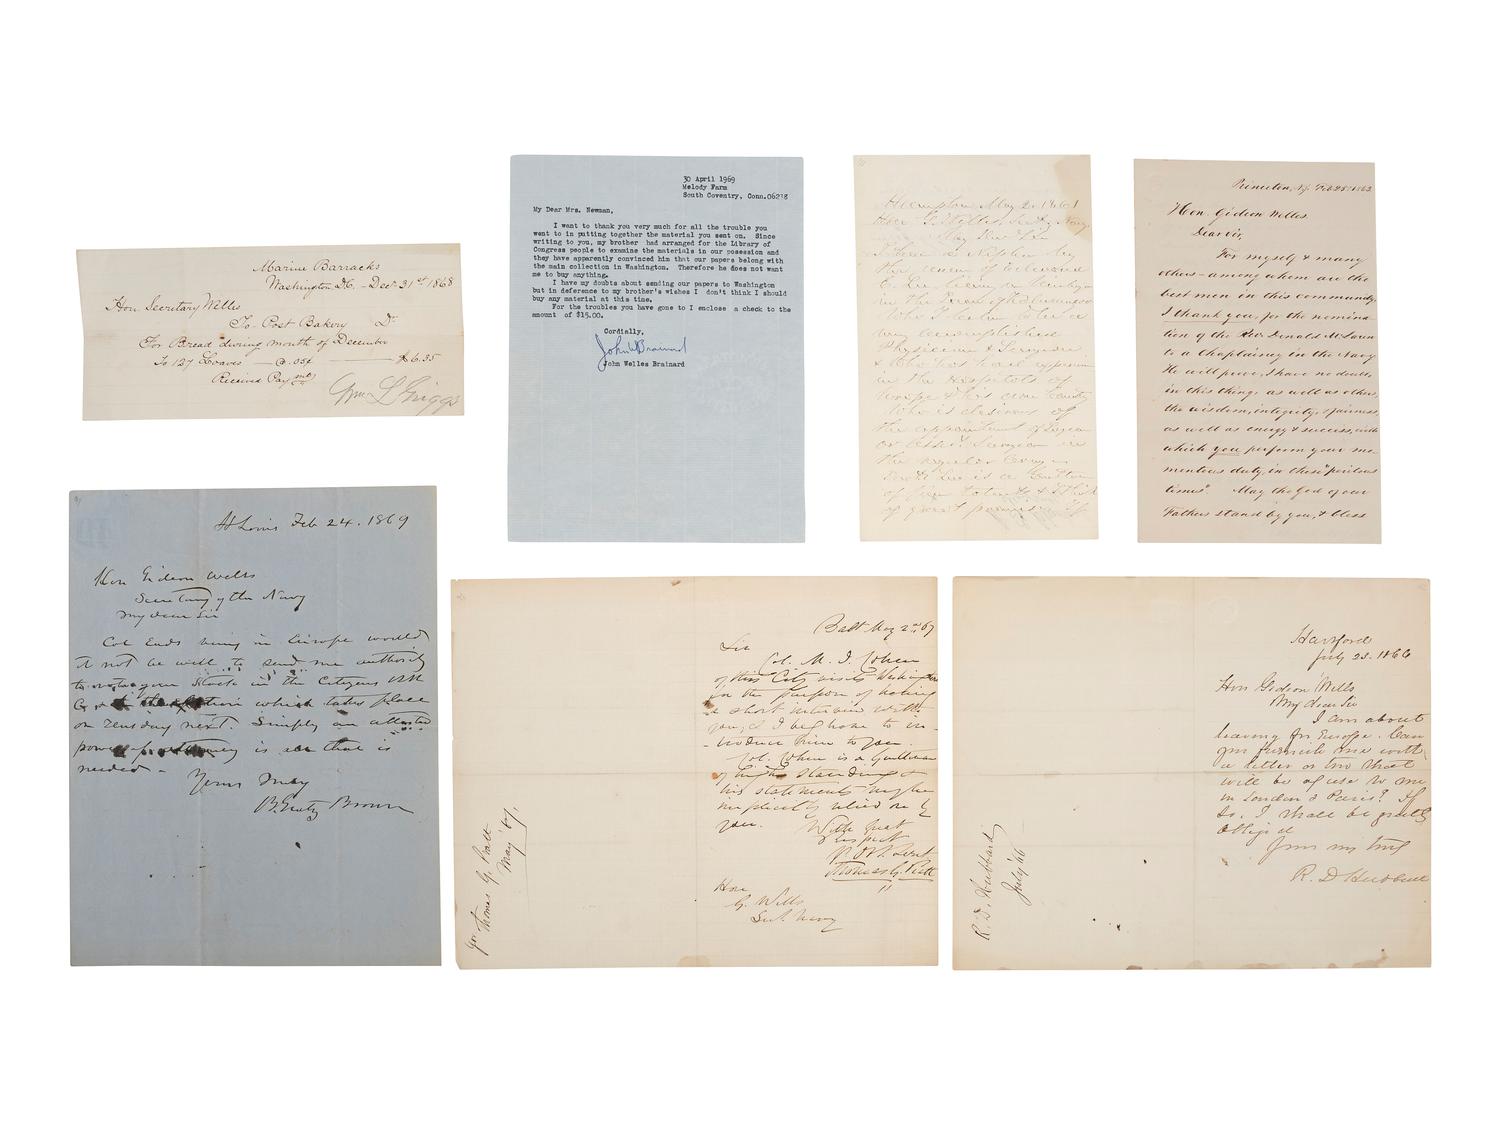 Marine Barracks
Washington D.C. - Dec 31st 1868
Hon. Secretary Welles
To Post Bakery Dr
For Bread during month of December
To 127 Loaves - @ .05¢ - $6.35
Received Paymt
Wm L Griggs
30 April 1969
Melody Farm
South Coventry, Conn.06238
My Dear Mrs. Newman,
I want to thank you very much for all the trouble you
went to in putting together the material you sent on. Since
writing to you, my brother had arranged for the Library of
Congress people to examine the materials in our posession and
they have apparently convinced him that our papers belong with
the main collection in Washington. Therefore he does not want
me to buy anything.
I have my doubts about sending our papers to Washington
but in deference to my brother's wishes I don't think I should
buy any material at this time.
For the troubles you have gone to I enclose a check to the
amount of $15.00.
Cordially,
John W Brainard
John Welles Brainard
May 2. 1861
Hon G. Welles, Secty Navy
My Dear Sir
Physician & Surgeon
in the Hospitals of
Europe & his own County
who is desirous of
the appointment of Surgeon
or Asst Surgeon in
the regular
of great promise if
Princeton, NJ. Feb 28th 1862
Hon. Gideon Welles.
Dear Sir,
For myself & many
others - among whom are the
best men in this community,
I thank you, for the nomina-
tion of the Rev Donald McLaren
to a Chaplaincy in the Navy
He will prove, I have no doubt,
in this thing, as well as others,
the wisdom, integrity, & fairness,
as well as energy & success, with
which you perform your mo-
mentous duty, in these "perilous
times". May the God of our
Fathers stand by you, & bless
St Louis Feb 24. 1869
Hon Gideon Welles
Secretary of the Navy
My dear Sir
Col Eads being in Europe would
it not be well to send me authority
to vote your Stock in the Citizens
which takes place
on Tuesday next. Simply an attested
power of attorney is all that is
needed -
Yours truly
B. Gratz Brown
Balt May 2nd, 67
Sir
Col. M. I. Cohen
of this City visits Washington
for the purpose of having
a short interview with
you, & I beg leave to in-
troduce him to you.
Col. Cohen is a Gentleman
of high standing &
his statements may be
implicitly relied on by
you.
With great
respect
Yr Obt Servt
Thomas G. Pratt
Hon
G. Wells
Sec. Navy
Gov Thomas G. Pratt
May '67.
Hartford
July 23. 1866
Hon Gideon Wells
My dear Sir
I am about
leaving for Europe. Can
you furnish me with
a letter or two that
will be of use to me
in London & Paris? If
so, I shall be greatly
obliged
Yours very truly
R. D. Hubbard
R. D. Hubbard
July '66